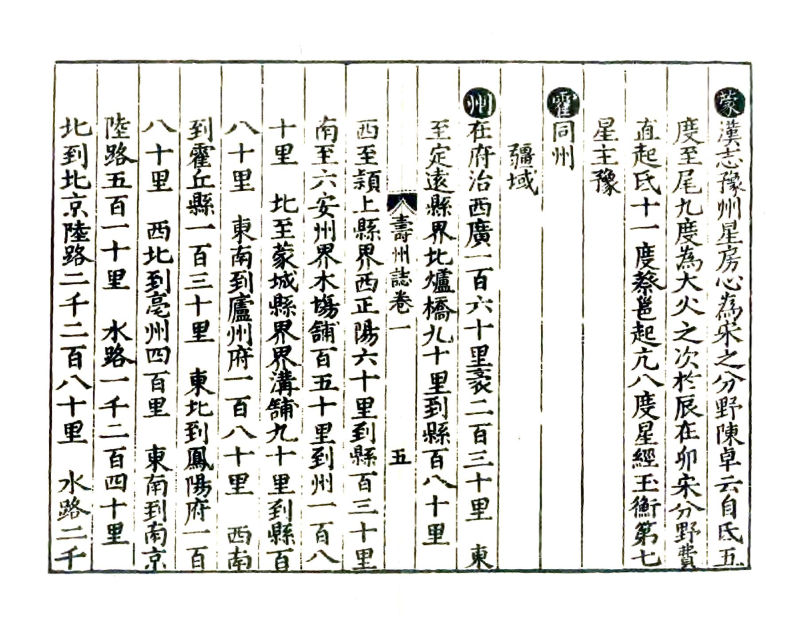 蒙漢志豫州星房心為宋之分野陳卓云自氐五
度至尾九度為大火之次於辰在卯宋分野費
直起氐十一度蔡邕起亢八度星經玉衡第七
星主豫
霍同州
疆域
州在府治西廣一百六十里袤二百三十里 東
至定遠縣界北爐橋九十里到縣百八十里
壽州誌卷一 五
西至潁上縣界西正陽六十里到縣百三十里
南至六安州界木塲舖百五十里到州一百八
十里 北至蒙城縣界界溝舖九十里到縣百
八十里 東南到廬州府一百八十里 西南
到霍丘縣一百三十里 東北到鳳陽府一百
八十里 西北到亳州四百里 東南到南京
陸路五百一十里 水路一千二百四十里
北到北京陸路二千二百八十里 水路二千